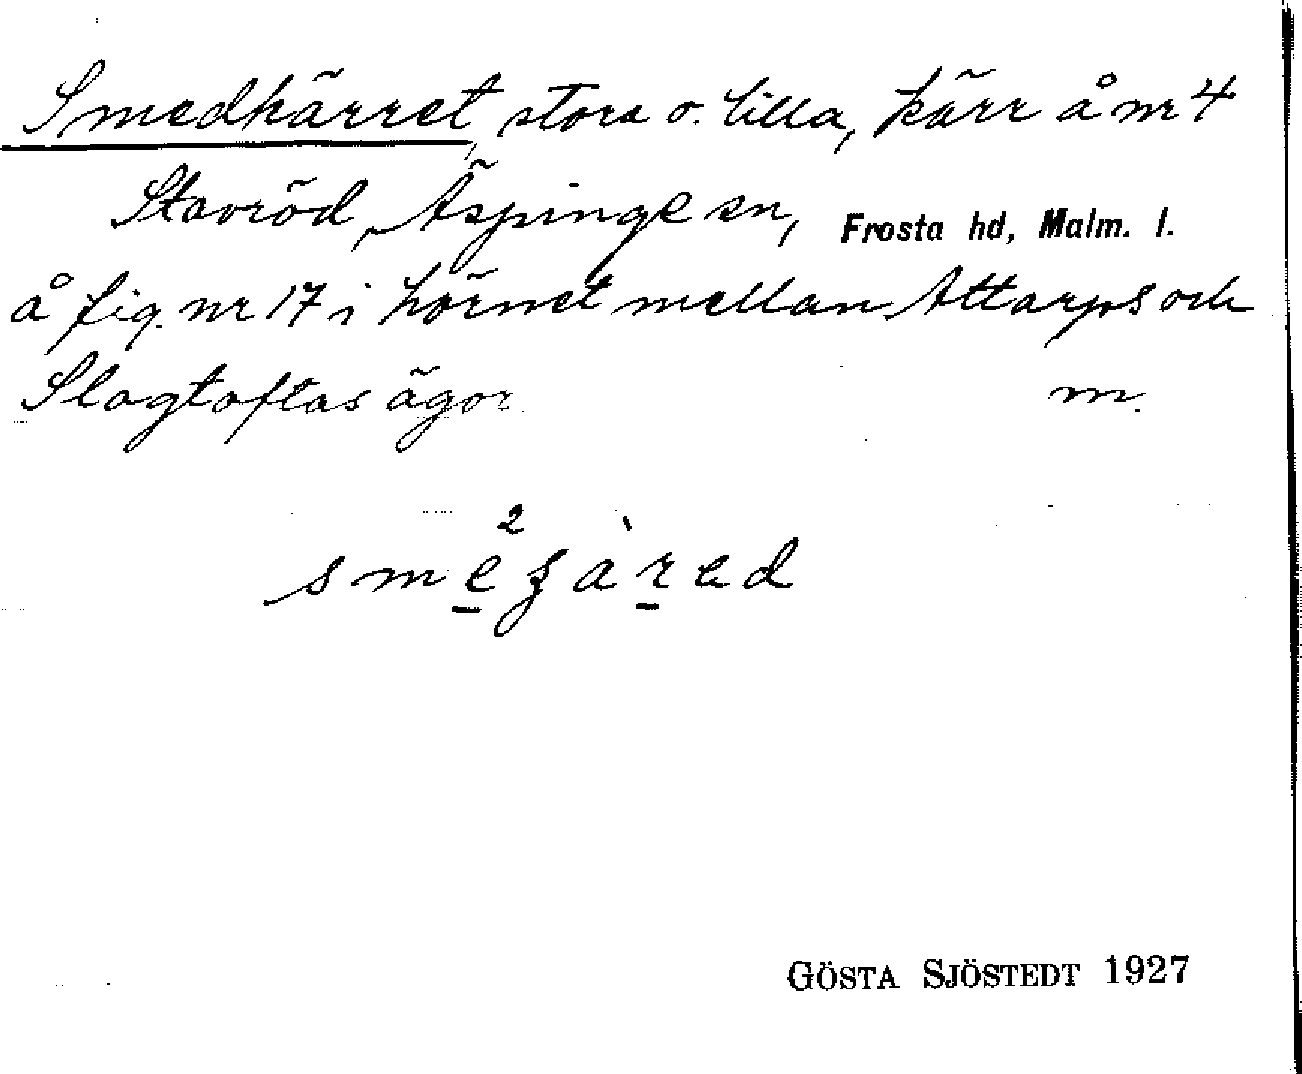 Smedkärret, stora o. lilla, kärr å nr 4
Stavröd, Äspinge sn, Frosta hd, Malm. l.
å fig. nr 17 i hörnet mellan Attarps och
Slagtoftas ägor. m.
2
smeʒàred
GÖSTA SJÖSTEDT 1927